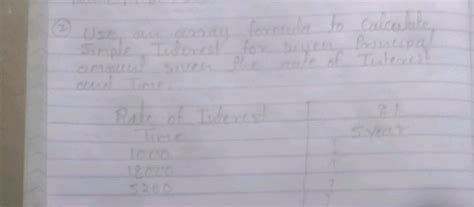 ② Use an array formula to Calculate
Simple Interest for given Principal
amount given the rate of Interest
and Time.
Rate of Interest 8%
Time 5 year
1000 ?
18000 ?
5200 ?
?